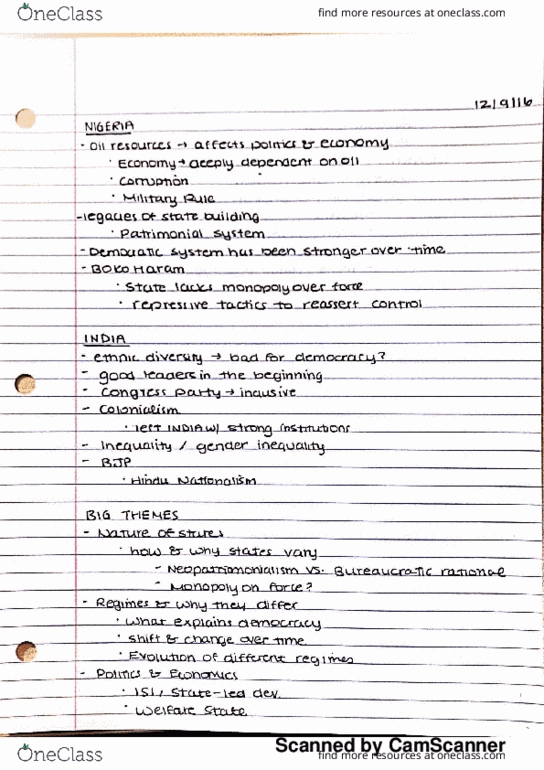 OneClass
find more resources at oneclass.com
12/9/16
NIGERIA
· Oil resources → affects politics & economy
· Economy → deeply dependent on oil
· Corruption
· Military Rule
-legacies of state building
· Patrimonial system
- Democratic system has been stronger over time
- BOKO Haram
· State lacks monopoly over force
· repressive tactics to reassert control
INDIA
- ethnic diversity → bad for democracy?
- good leaders in the beginning
- Congress party → inclusive
- Colonialism
· left INDIA w/ strong institutions
- Inequality / gender inequality
- BJP
· Hindu Nationalism
BIG THEMES
- Nature of states
· how & why states vary
- Neopatrimonialism vs. Bureaucratic rational
- Monopoly on force?
- Regimes & why they differ
· What explains democracy
· shift & change over time
· Evolution of different regimes
- Politics & Economics
· ISI, State-led dev.
· Welfare State
Scanned by CamScanner
OneClass
find more resources at oneclass.com